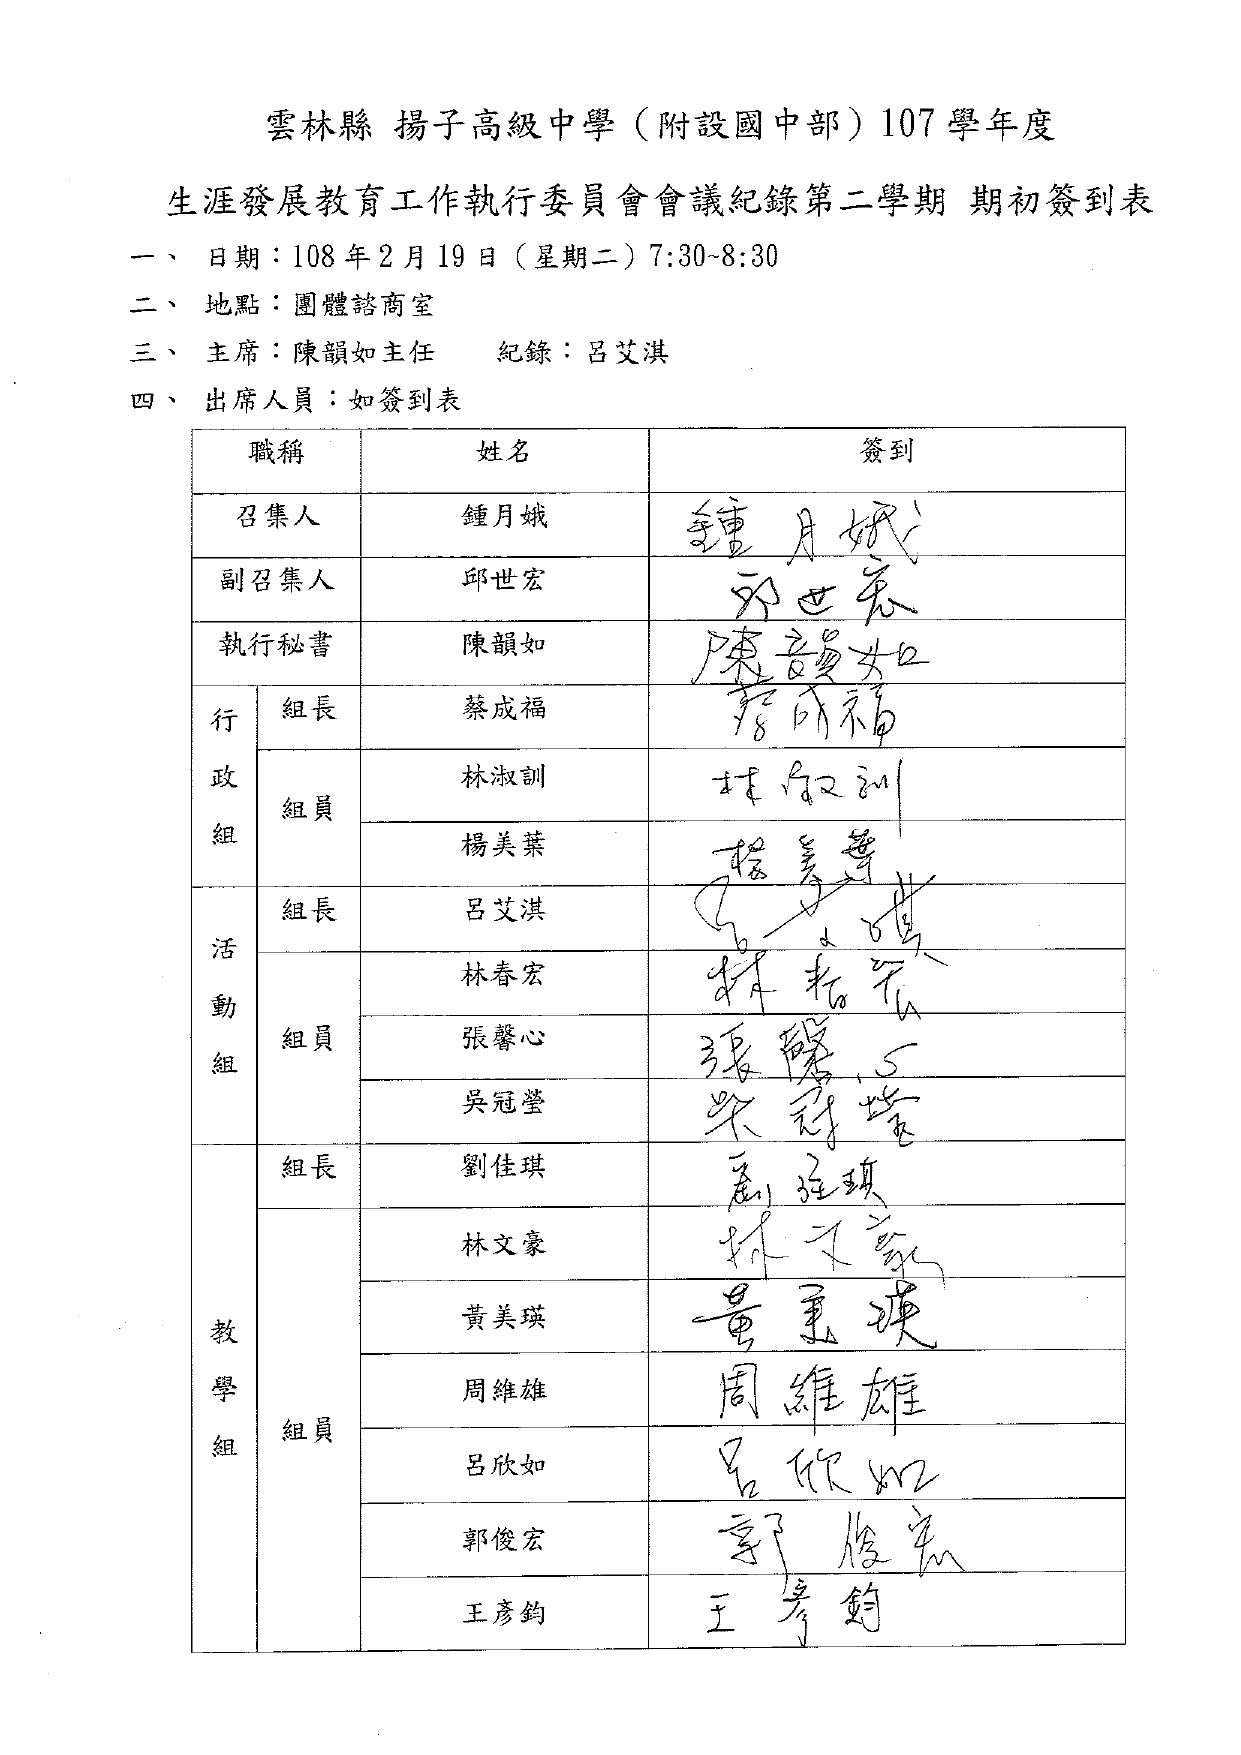 雲林縣 揚子高級中學（附設國中部）107 學年度
生涯發展教育工作執行委員會會議紀錄第二學期 期初簽到表
一、 日期：108 年 2 月 19 日（星期二）7:30~8:30
二、 地點：團體諮商室
三、 主席：陳韻如主任 紀錄：呂艾淇
四、 出席人員：如簽到表
職稱 姓名 簽到
召集人 鍾月娥 鍾月娥
副召集人 邱世宏 邱世宏
執行秘書 陳韻如 陳韻如
行政組 組長 蔡成福 蔡成福
組員 林淑訓 林淑訓
楊美葉 楊美葉
活動組 組長 呂艾淇 呂艾淇
組員 林春宏 林春宏
張馨心 張馨心
吳冠瑩 吳冠瑩
教學組 組長 劉佳琪 劉佳琪
組員 林文豪 林文豪
黃美瑛 黃美瑛
周維雄 周維雄
呂欣如 呂欣如
郭俊宏 郭俊宏
王彥鈞 王彥鈞